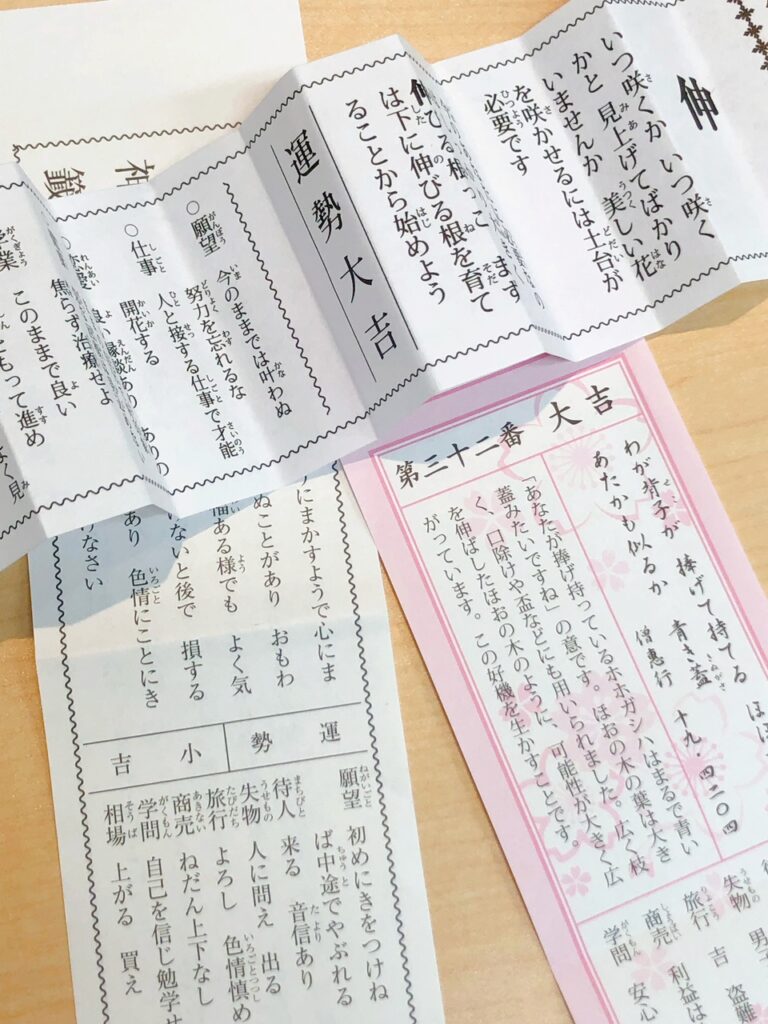 伸
いつ咲くか いつ咲く
かと 見上げてばかり
いませんか 美しい花
を咲かせるには土台が
必要です
は下に伸びる根を育て
ることから始めよう
運勢大吉
○願望 今のままでは叶わぬ
努力を忘れるな
○仕事 人と接する仕事で才能
開花する
焦らず治療せよ
学業 このままで良い
もって進め
神
第三十二番 大吉
わが背子が 捧げて持てる
あたかも似るか 青き蓋
僧恵行 十九・四二〇四
「あなたが捧げ持っているホホガシハはまるで青い
蓋みたいですね」の意です。ほおの木の葉は大き
く、口除けや盃などにも用いられました。広く枝
を伸ばしたほおの木のように、可能性が大きく広
がっています。この好機を生かすことです。
失物
旅行 吉 盗難
商売 利益は
学問 安心
にまかすようで心にま
ぬことがあり おもわ
ある様でも よく気
けないと後で 損する
あり 色情にことにき
けなさい
運勢 小吉
願望 初めにきをつけね
ば中途でやぶれる
待人 来る 音信あり
失物 人に問え 出る
旅行 よろし 色情慎め
商売 ねだん上下なし
学問 自己を信じ勉学せ
相場 上がる 買え